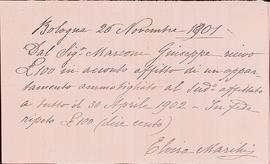 Bologna 26 Novembre 1901
Dal Sig. Marconi Giuseppe ricevo
£100 in acconto affitto di un appar
tamento ammobigliato al Sud° affittato
a tutto il 30 Aprile 1902 - In fede
ripeto £100 (dico cento)
Elvira